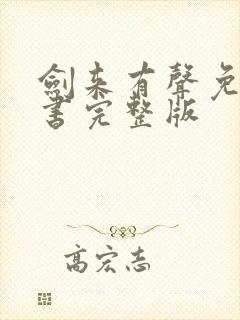 劍来有聲免
書完整版
高宏志